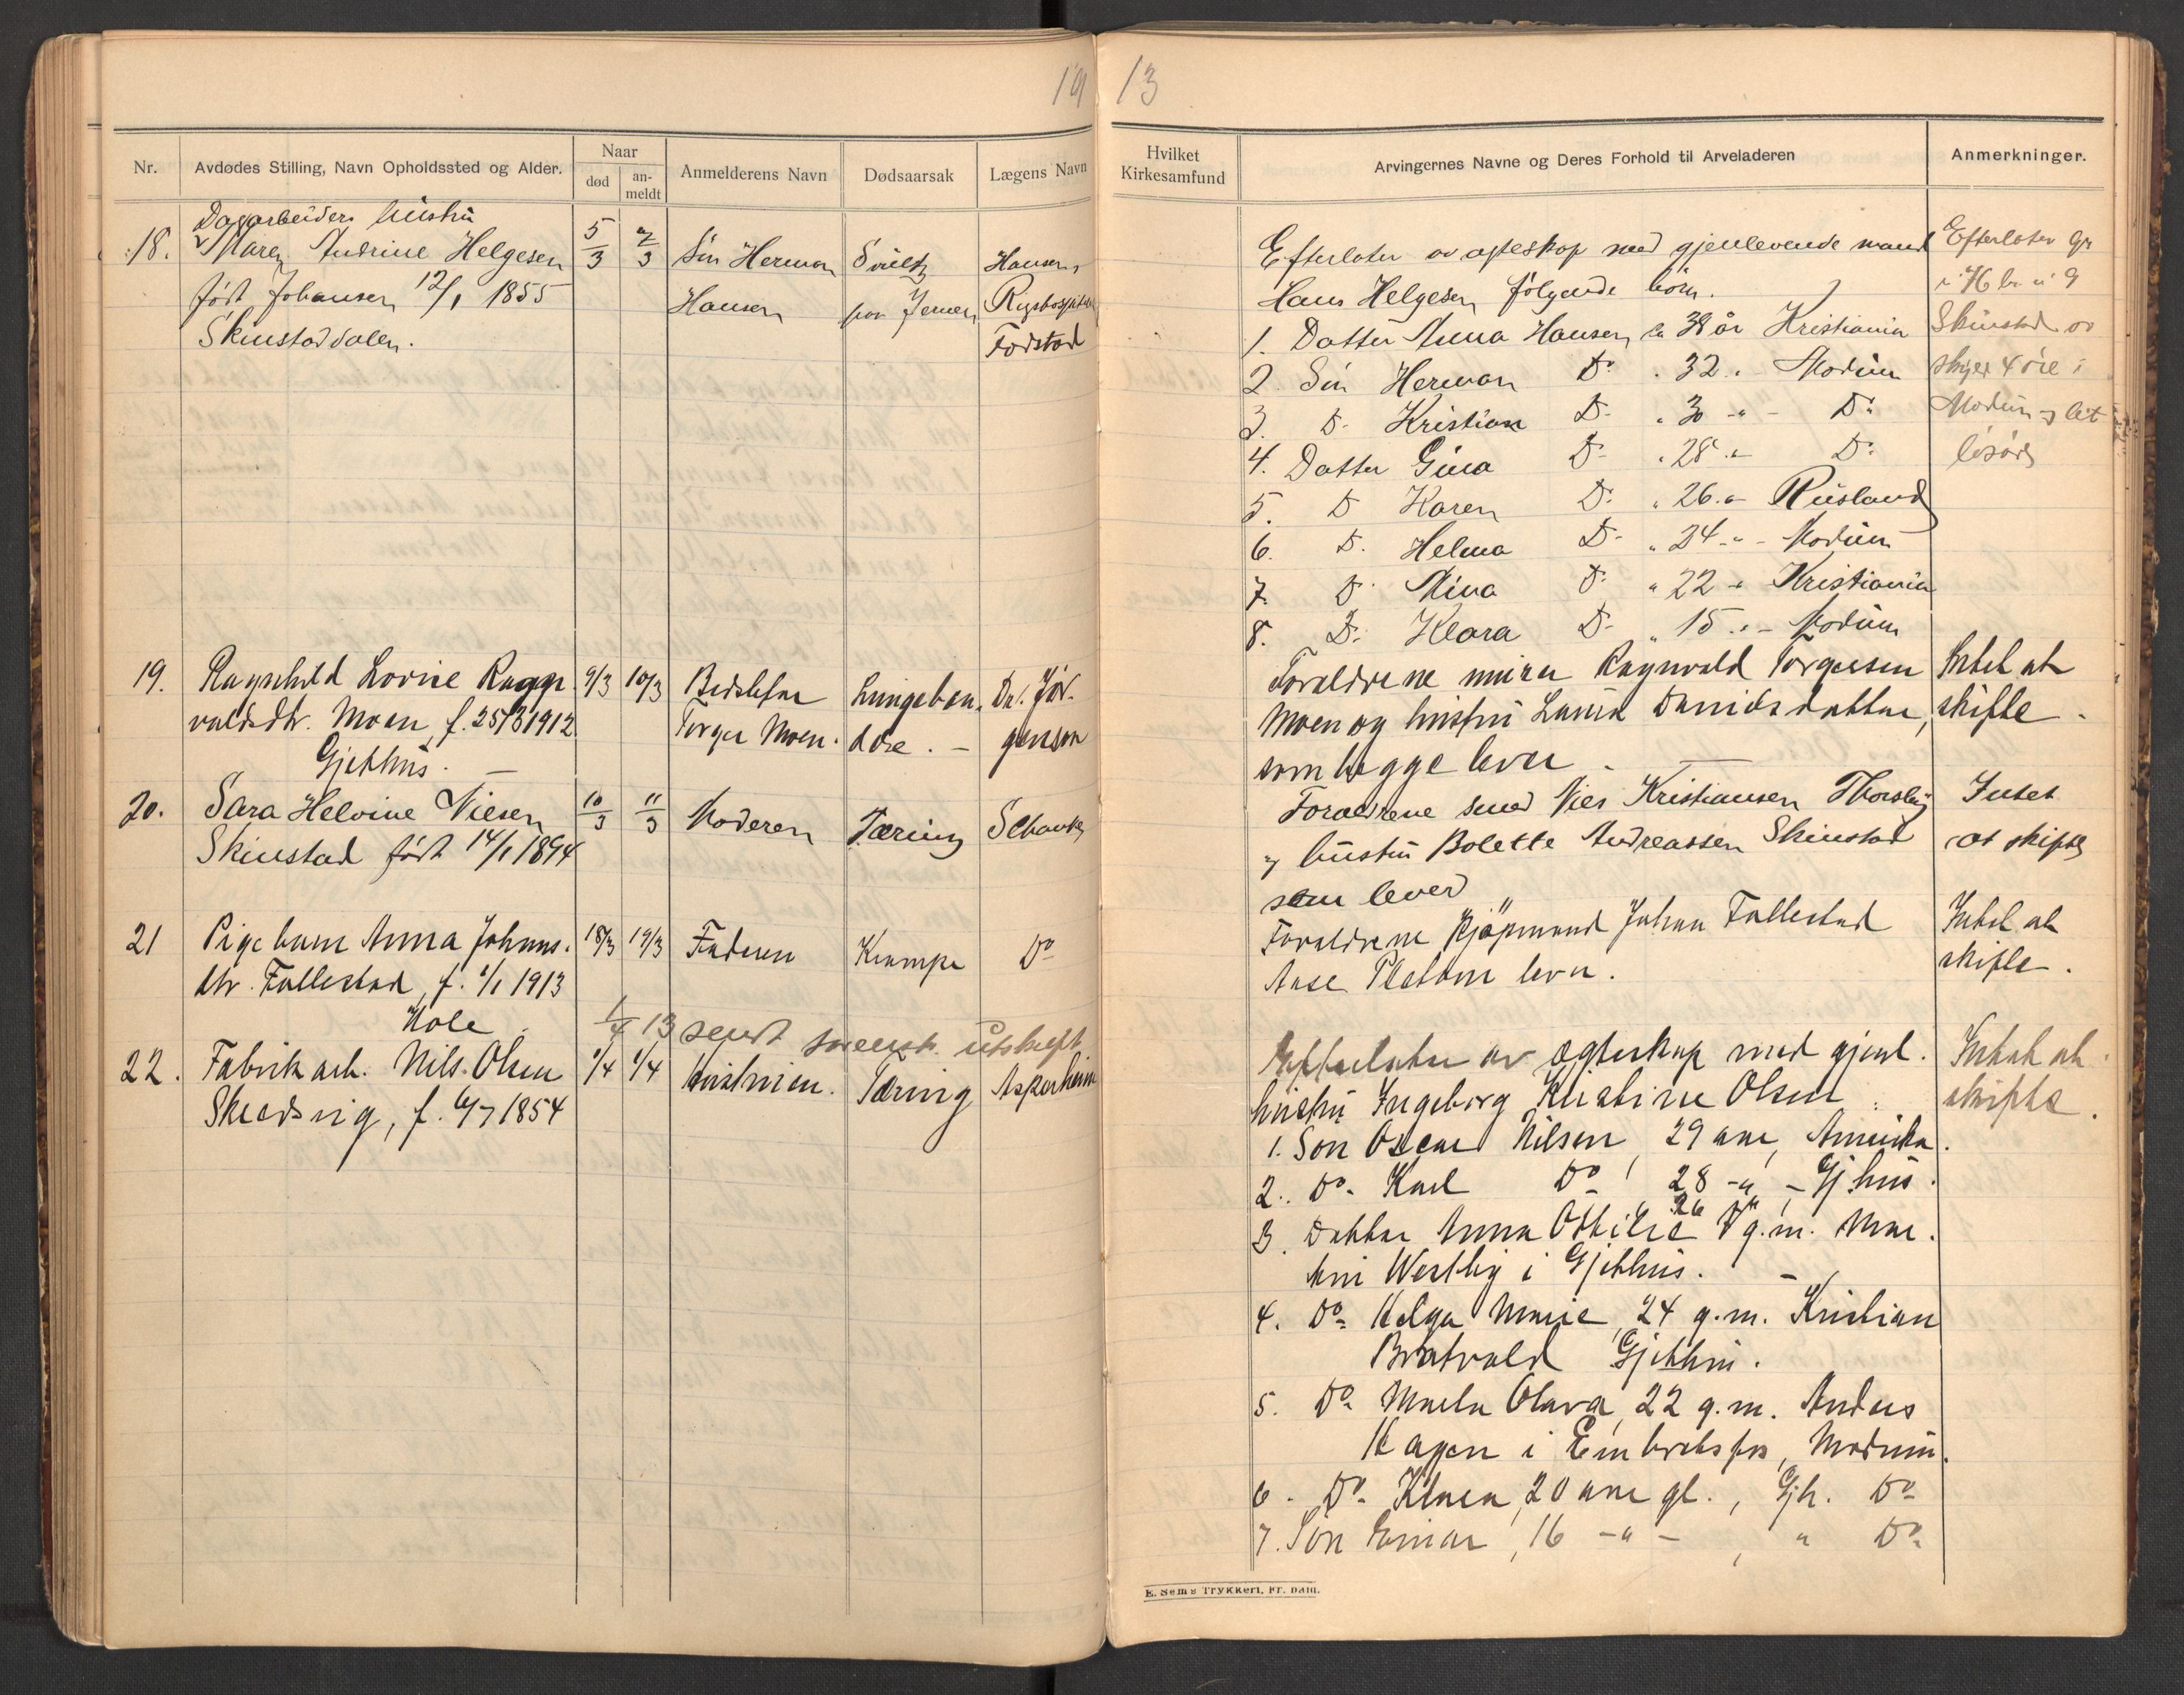 19
13
Nr.
Avdødes Stilling, Navn Opholdssted og Alder.
Naar
død
an-
meldt
Anmelderens Navn
Dødsaarsak
Lægens Navn
18.
Dagarbeiders hustru
Maren Andrine Helgesen
født Johansen 12/1 1855
Skinstaddalen.
5/3
7/3
Sön Herman
Hansen
Svulst
paa
Hansen,
Rigshospital
Fodstad
19.
Ragnhild Lovise Ragn-
valdsdtr. Moen, f. 25/3 1912
Gjethus. —
9/3
10/3
Bedstefar
Torger Moen.
Lungebeten-
delse. —
Dr. Jör-
gensen
20.
Sara Helvine Nilsen
Skinstad født 14/1 1894
10/3
11/3
Moderen
Tæring
Schanke
21
Pigebarn Anna Johans-
dtr. Fallestad, f. 1/1 1913
Kole
18/3
19/3
Faderen
Krampe
Do
1/4 13 sendt utskrift
22.
Fabrikarb. Nils Olsen
Skredsvig, f. 6/7 1854
1/4
1/4
hustruen.
Tæring
Asperheim
Hvilket
Kirkesamfund
Arvingernes Navne og Deres Forhold til Arveladeren
Anmerkninger.
Efterlater av ægteskap med gjenlevende mand
Hans Helgesen følgende børn.
1. Datter Anna Hansen ca 38 år Kristiania
2. Sön Herman Do " 32 " Modum
3. D. Kristian D. " 30 - " - Do
4. Datter Gina D. " 28 " - Do
5. D Karen D. " 26 " - Rusland
6. D. Helma D. " 24 - " - Modum
7. D. Mina D. " 22 - " Kristiania
8. D. Klara D. " 15 " - Modum
Efterlater gr
i H br. n 9
Skinstad av
skyld 4 øre i
Modum og lit
løsøre
Foreldrene murer Ragnvald Torgersen
Moen og hustru Lovise Davidsdatter,
som begge lever. —
Intet at
skifte.
Foreldrene smed Nils Kristiansen Thorsby
og hustru Bolette Andreassen Skinstad
som lever
Intet
at skifte
Foreldrene Kjöpmand Johan Fallestad
Aase Pletan lever.
Intet at
skifte.
Efterlater av ægteskap med gjenl.
hustru Ingeborg Kristine Olsen
1. Sön Oscar Nilsen, 29 aar, Amerika.
2. Do. Karl Do, 28 - " - Gj.hus.
3. Datter Anna Othilie 26 år g.m. Mar-
tin Westby i Gjethus. —
4. Do. Helga Marie, 24 g.m. Kristian
Bratvold Gjethus.
5. Do. Marta Olava, 22 g.m. Anders
Hagen i Embretsfos, Modum.
6. Do. Klara, 20 aar gl., Gjh. Do
7. Sön Einar, 16 - " - , " Do.
Intet at
skifte.
E. Sem's Trykkeri, Fr. hald.